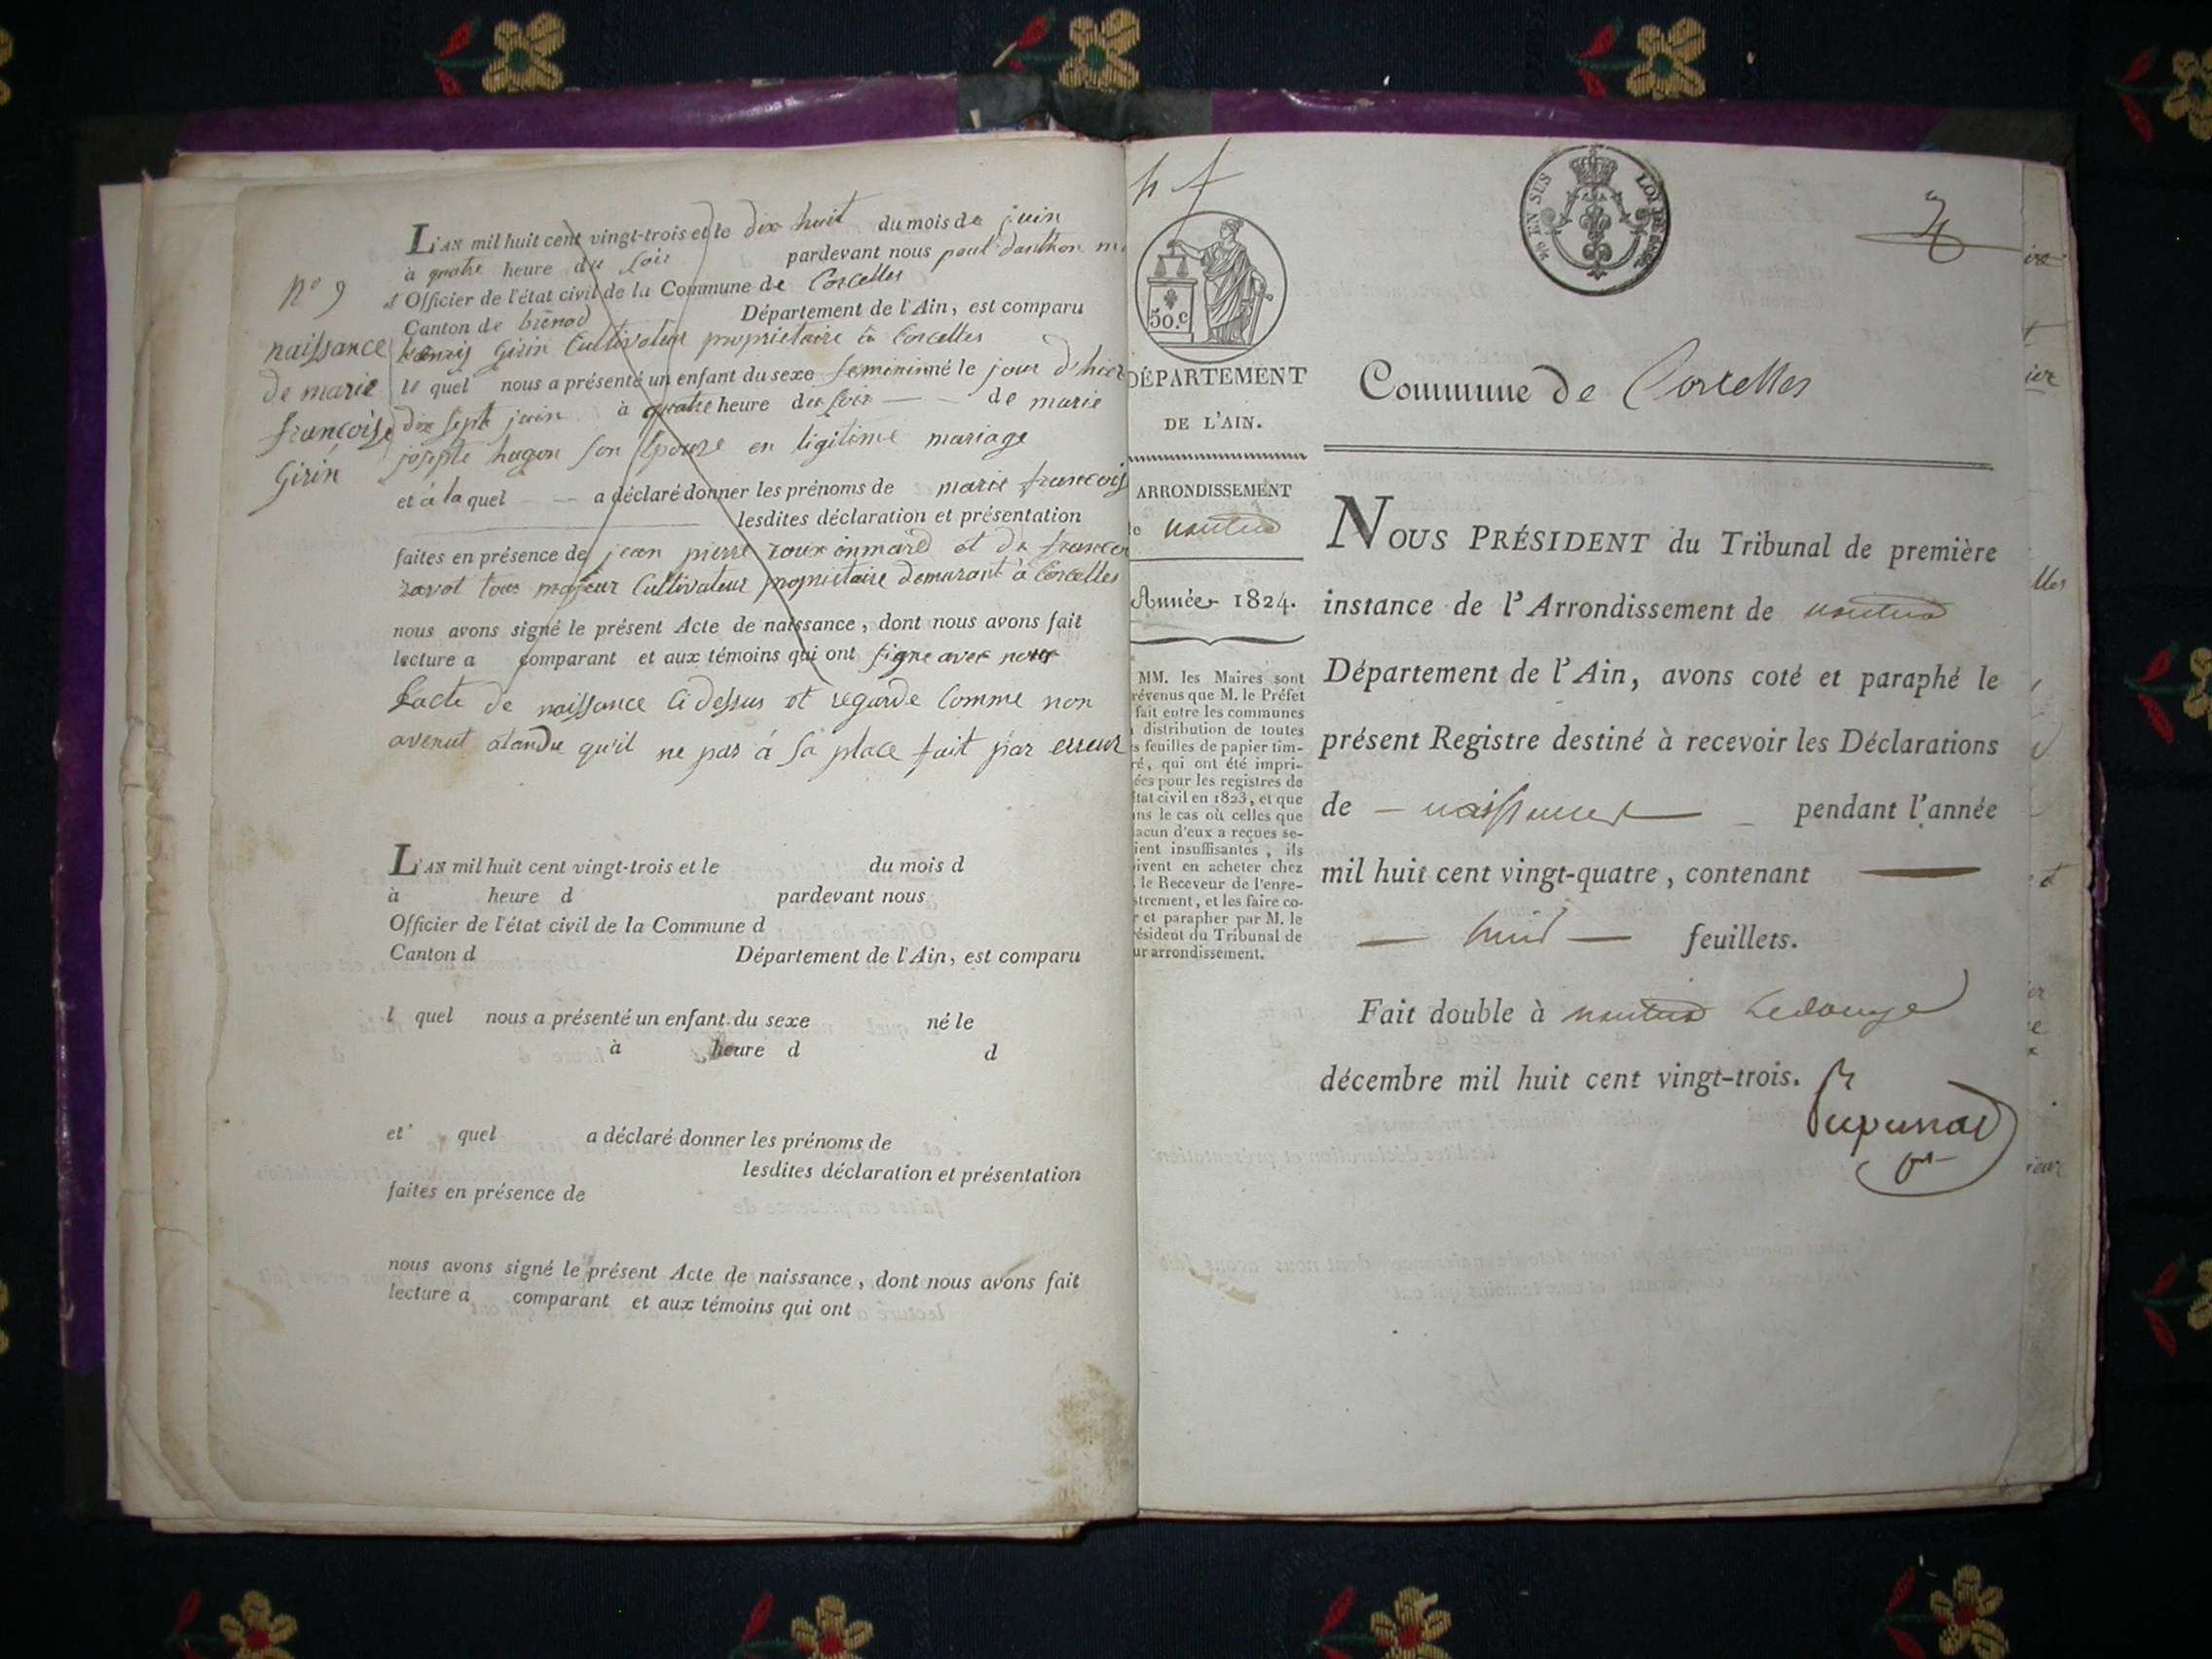 L'AN mil huit cent vingt-trois et le dix huit du mois de juin
à quatre heure du soir pardevant nous paul danthon
Officier de l'état civil de la Commune de Corcelles
Canton de brénod Département de l'Ain, est comparu
Girin Cultivateur propriétaire à Corcelles
le quel nous a présenté un enfant du sexe feminin né le jour d'hier
dix sept juin à quatre heure du soir — de marie
josephte hugon son Epouze en ligitime mariage
et à la quel — a déclaré donner les prénoms de marie françoise
lesdites déclaration et présentation
faites en présence de jean pierre et de
ravot tous majeur Cultivateur propriétaire demurant à Corcelles
nous avons signé le présent Acte de naissance, dont nous avons fait
lecture a comparant et aux témoins qui ont signe avec nous
Lacte de naissance Ci dessus et regarde Comme non
avenut atandu qu'il ne pas à sa place fait par erreur
N° 9
naissance
de marie
françoise
Girin
L'AN mil huit cent vingt-trois et le du mois d
à heure d pardevant nous
Officier de l'état civil de la Commune d
Canton d Département de l'Ain, est comparu
l quel nous a présenté un enfant du sexe né le
à heure d d
et quel a déclaré donner les prénoms de
lesdites déclaration et présentation
faites en présence de
nous avons signé le présent Acte de naissance, dont nous avons fait
lecture a comparant et aux témoins qui ont
50.c
DÉPARTEMENT
DE L'AIN.
ARRONDISSEMENT
de nantua
Année 1824.
MM. les Maires sont
révenus que M. le Préfet
fait entre les communes
distribution de toutes
s feuilles de papier tim-
ré, qui ont été impri-
ées pour les registres de
état civil en 1823, et que
ans le cas où celles que
acun d'eux a reçues se-
ient insuffisantes, ils
oivent en acheter chez
le Receveur de l'enre-
strement, et les faire co-
r et parapher par M. le
ésident du Tribunal de
ur arrondissement.
EN SUS LOI DE
Commune de Corcelles
NOUS PRÉSIDENT du Tribunal de première
instance de l'Arrondissement de nantua
Département de l'Ain, avons coté et paraphé le
présent Registre destiné à recevoir les Déclarations
de — naissances — pendant l'année
mil huit cent vingt-quatre, contenant —
— huit — feuillets.
Fait double à nantua le douze
décembre mil huit cent vingt-trois.